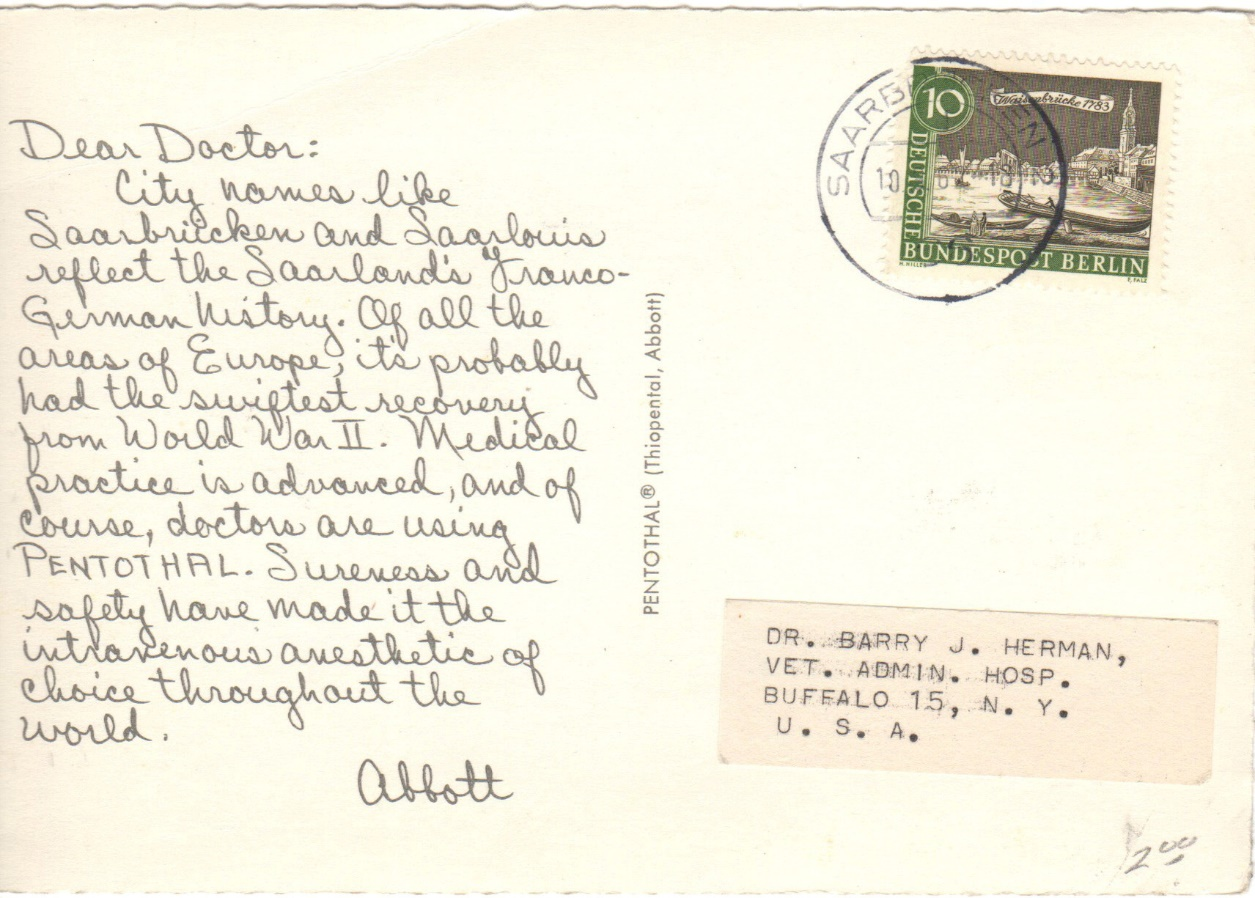 Dear Doctor:
City names like
Saarbrücken and Saarlouis
reflect the Saarland's Franco-
German history. Of all the
areas of Europe, it's probably
had the swiftest recovery
from World War II. Medical
practice is advanced, and of
course, doctors are using
PENTOTHAL. Sureness and
safety have made it the
intravenous anesthetic of
choice throughout the
world.
Abbott
PENTOTHAL® (Thiopental, Abbott)
10
Waisenbrücke 1783
DEUTSCHE
BUNDESPOST BERLIN
DR. BARRY J. HERMAN,
VET. ADMIN. HOSP.
BUFFALO 15, N. Y.
U. S. A.
2.00